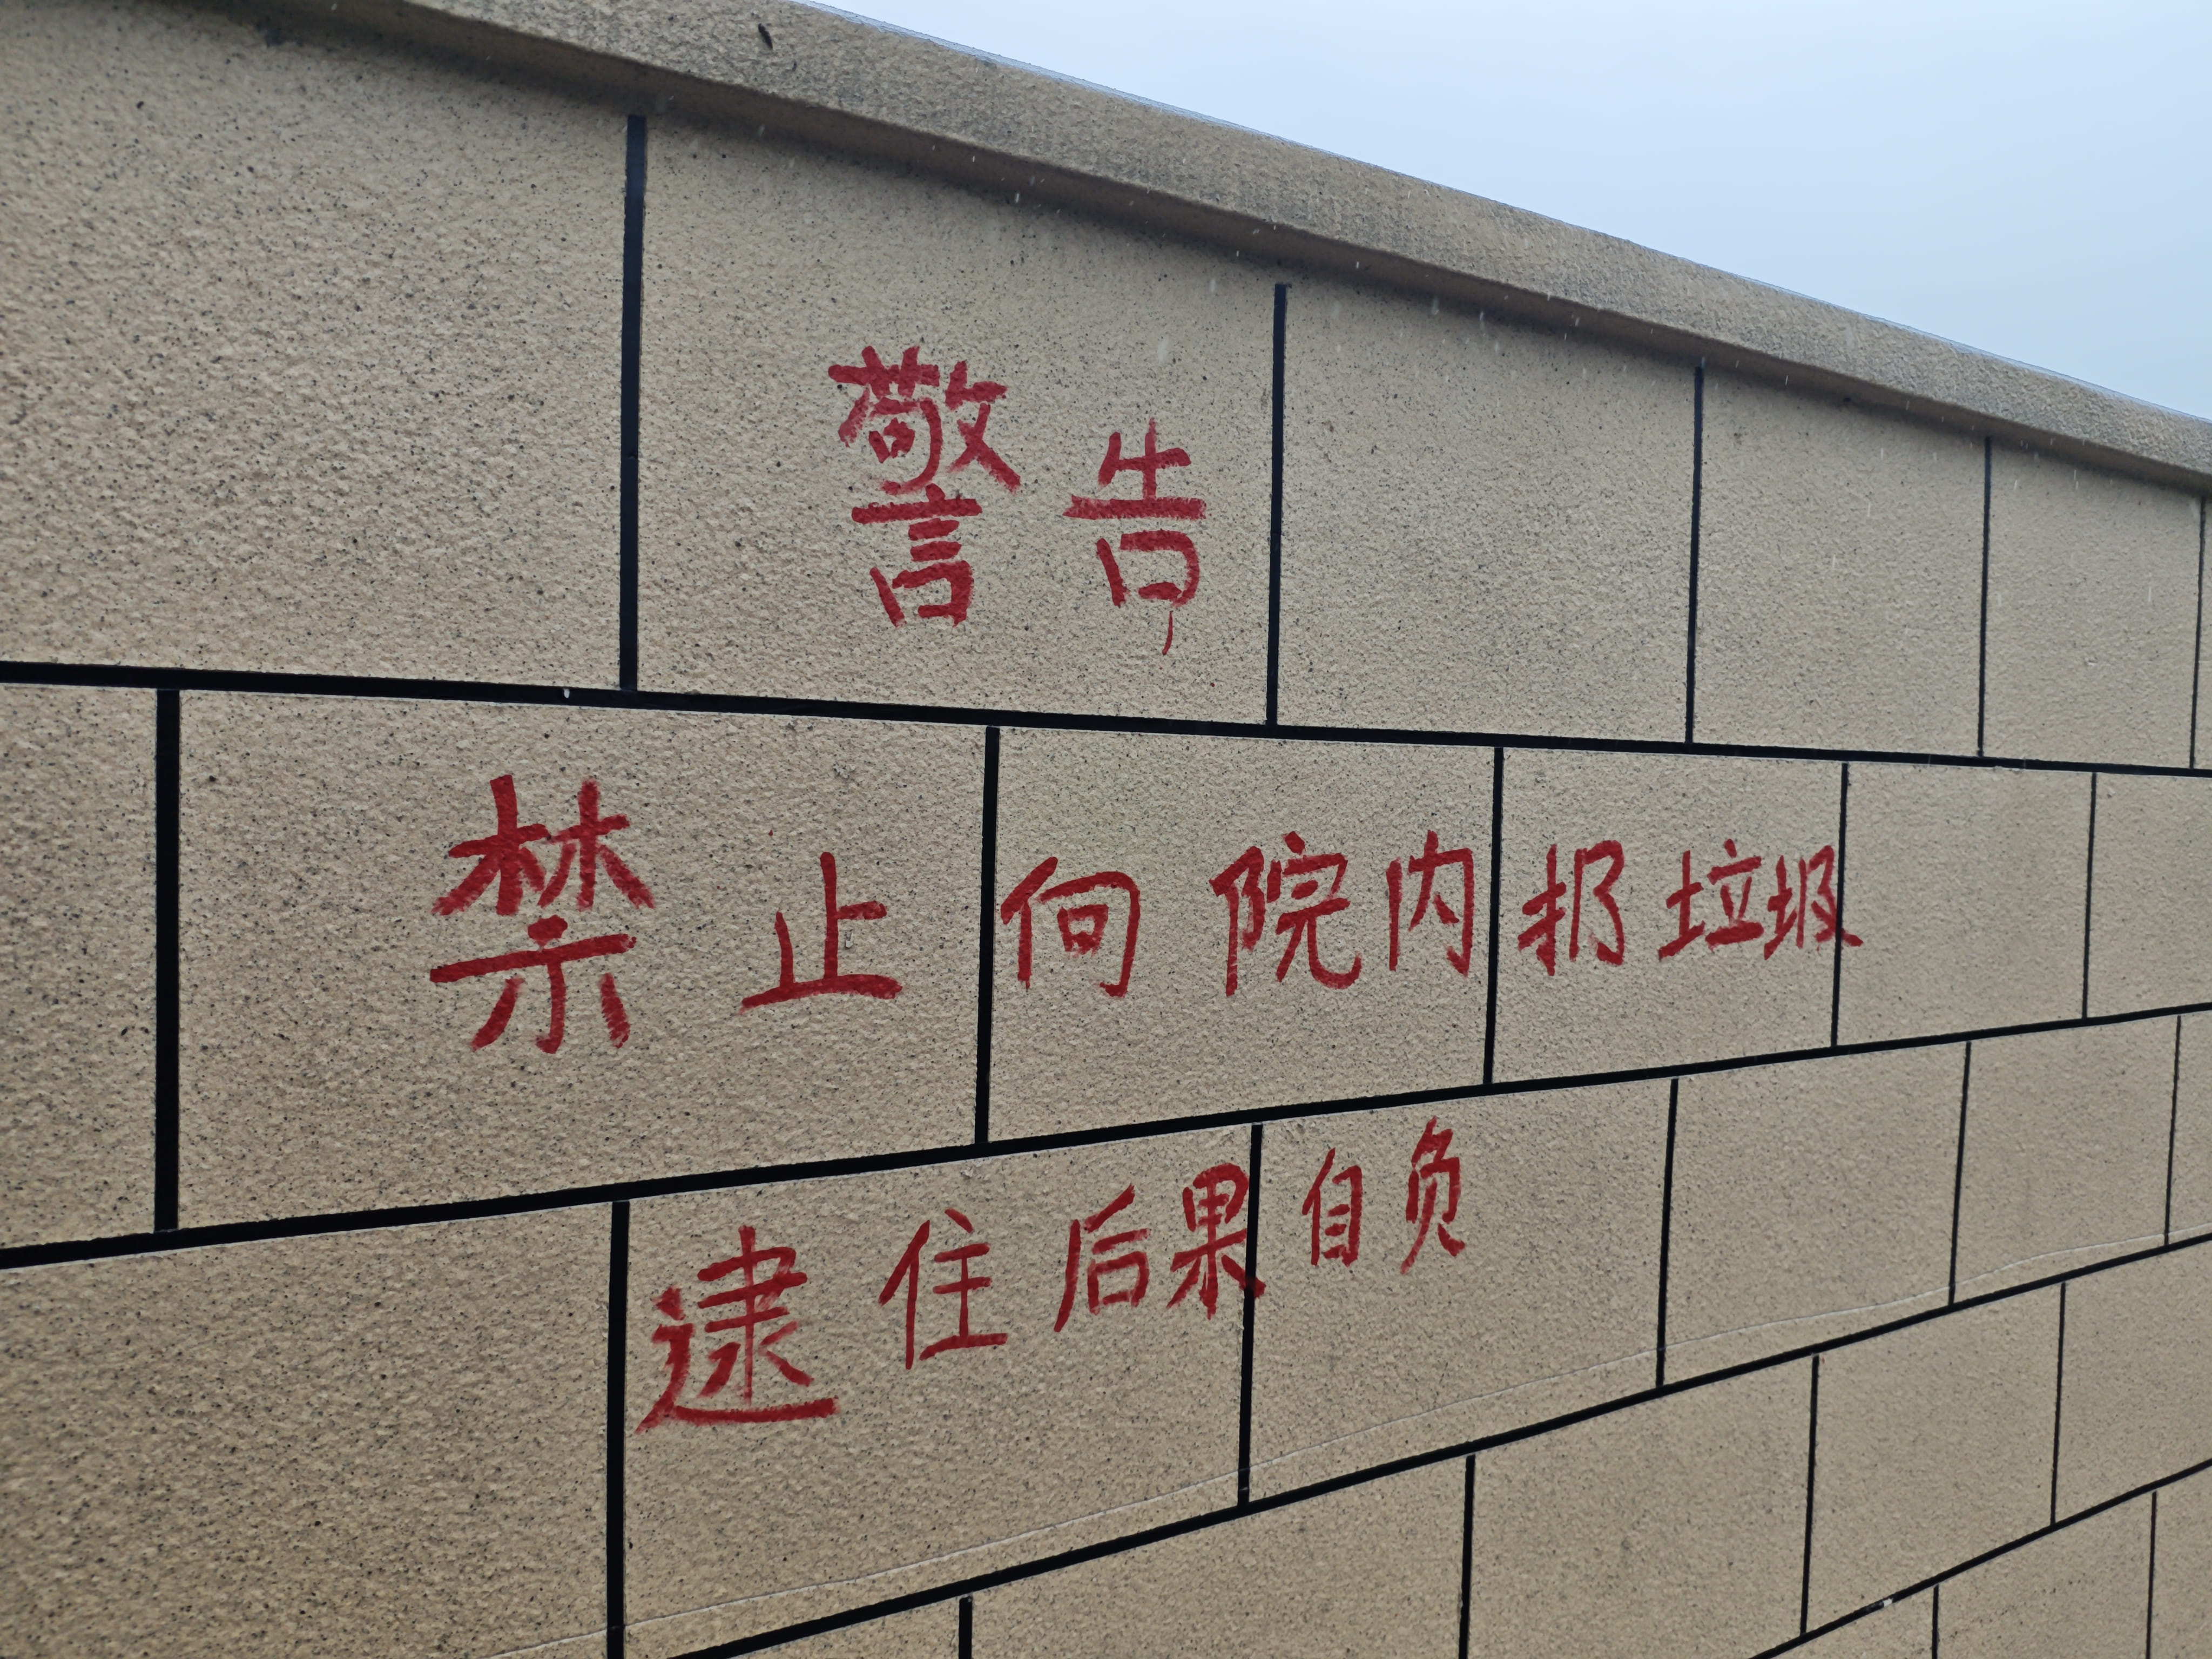 警告
禁止向院内扔垃圾
逮住后果自负